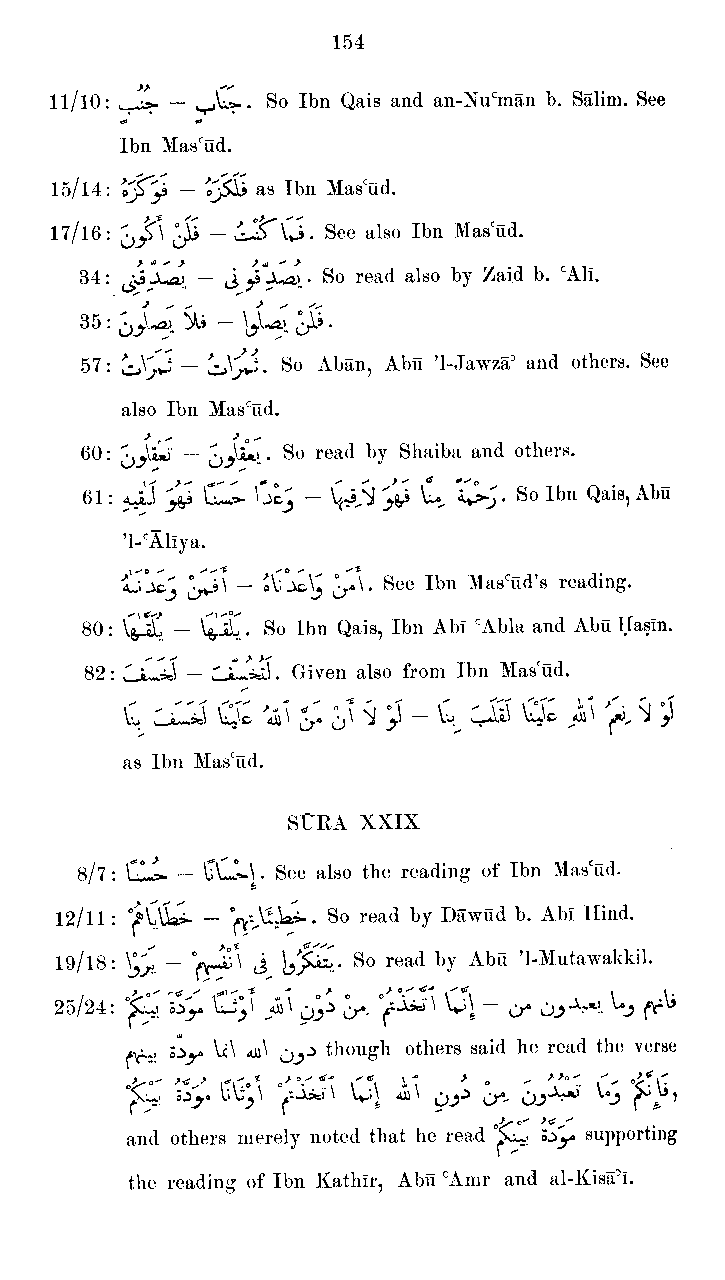 154
11/10: جُنُبٍ — جَنَابٍ. So Ibn Qais and an-Nuʿmān b. Sālim. See
Ibn Masʿūd.
15/14: فَوَكَزَهُ — فَلَكَزَهُ as Ibn Masʿūd.
17/16: فَلَنْ أَكُونَ — فَمَا كُنْتُ. See also Ibn Masʿūd.
34: يُصَدِّقُنِى — يُصَدِّقُونِى. So read also by Zaid b. ʿAlī.
35: فَلاَ يَصِلُونَ — فَلَنْ يَصِلُوا.
57: ثَمَرَاتُ — ثُمُرَاتُ. So Abān, Abū ’l-Jawzāʾ and others. See
also Ibn Masʿūd.
60: تَعْقِلُونَ — يَعْقِلُونَ. So read by Shaiba and others.
61: وَعْدًا حَسَنًا فَهُوَ لَٰقِيهِ — رَحْمَةً مِنَّا فَهُوَ لاَقِيهَا. So Ibn Qais, Abū
’l-ʿĀlīya.
أَفَمَنْ وَعَدْنَٰهُ — أَمَنْ وَاعَدْنَاهُ. See Ibn Masʿūd's reading.
80: يُلَقَّىٰهَا — يَلْقَىٰهَا. So Ibn Qais, Ibn Abī ʿAbla and Abū Ḥaṣīn.
82: لَخَسَفَ — لَتُخُسِّفَ. Given also from Ibn Masʿūd.
لَوْ لاَ أَنْ مَنَّ ٱللّٰهُ عَلَيْنَا لَخَسَفَ بِنَا — لَوْ لاَ نِعَمُ ٱللّٰهِ عَلَيْنَا لَقَلَبَ بِنَا
as Ibn Masʿūd.
SŪRA XXIX
8/7: حُسْنًا — إِحْسَانًا. See also the reading of Ibn Masʿūd.
12/11: خَطَايَاهُمْ — خَطِيئَاتِهِمْ. So read by Dāwūd b. Abī Hind.
19/18: يَرَوْا — يَتَفَكَّرُوا فِى أَنْفُسِهِمْ. So read by Abū ’l-Mutawakkil.
25/24: إِنَّمَا ٱتَّخَذْتُمْ مِنْ دُوْنِ ٱللّٰهِ أَوْثَٰنًا مَوَدَّةَ بَيْنِكُمْ — فانهم وما يعبدون من
دون الله انما مودة بينهم though others said he read the verse
فَإِنَّكُمْ وَمَا تَعْبُدُونَ مِنْ دُونِ ٱللّٰه إِنَّمَا ٱتَّخَذْتُمْ أَوْثَانًا مَوَدَّةُ بَيْنِكُمْ,
and others merely noted that he read مَوَدَّةُ بَيْنِكُمْ supporting
the reading of Ibn Kathīr, Abū ʿAmr and al-Kisāʾī.